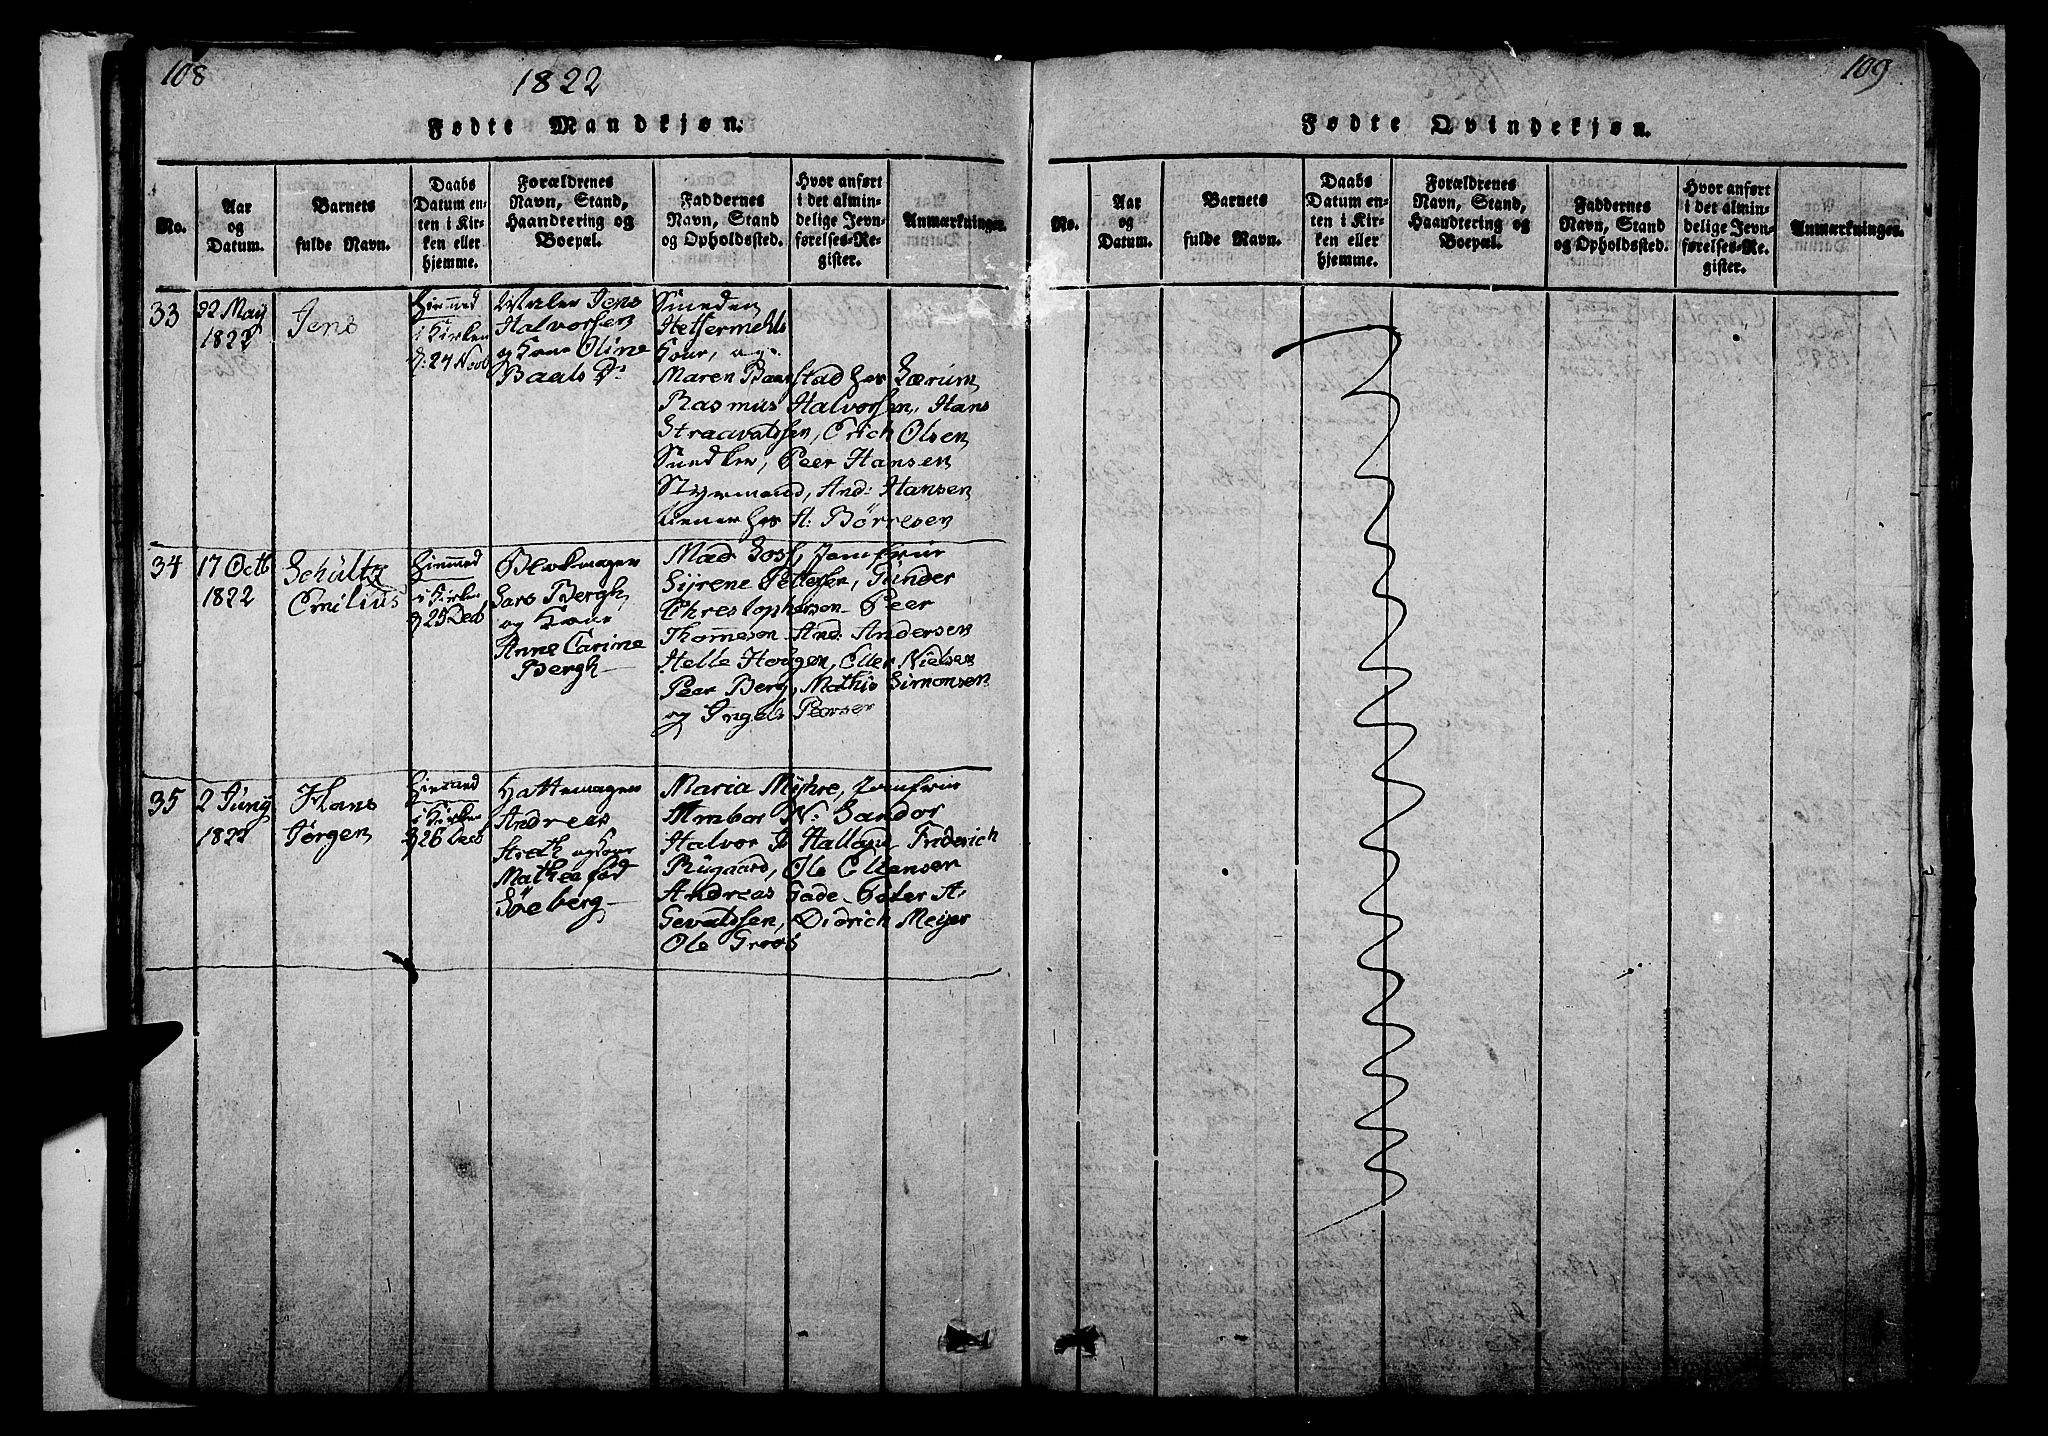 108
1822
Fødte Mandkjøn.
No.
Aar og Datum.
Barnets fulde Navn.
Daabs Datum enten i Kirken eller hjemme.
Forældrenes Navn, Stand, Haandtering og Boepæl.
Faddernes Navn, Stand og Opholdssted.
Hvor anført i det almindelige Jevnførelses-Register.
Anmærkninger.
33
22 May
1822
Jens
Hiemmed
i Kirken
d: 24 Novb
Jens
Halvorsen
og Kone Oline
Baals D:
Kone, og
Maren Baarstad hos Lærum
Rasmus Halvorsen, Hans
Straavaldsen, Erich Olsen
Snedker, Peer Hansen
Styrmand, And: Hansen
tiener hos A: Börresen
34
17 Octb
1822
Schültz
Emilius
Hiemmed
i Kirken
d 25 Decb
Blokmager
Lars Bergh,
og Kone
Anne Carine
Bergh
Mad Jomfrue
Sirene Pettersen, Günder
Christophersen Peer
Thommesen And: Andersen
Helle Hougen, Eller Nielsen
Peer Berg, Mathis Simonsen
og Ingels
35
2 Juny
1822
Hans
Jørgen
Hiemmed
i Kirken
d 26 Decb
Hattemager
Andreas
og Kone
Mathea fød
Søeberg
Maria Myhre, Jomfrue
N: Sandor
Halvor Halland, Friderich
Rügaard, Ole Ellensen
Andreas Gade Peter A:
Gevaldsen, Didrich Meyer
Ole Groos
109
Fødte Qvindekjøn.
No.
Aar og Datum.
Barnets fulde Navn.
Daabs Datum enten i Kirken eller hjemme.
Forældrenes Navn, Stand, Haandtering og Boepæl.
Faddernes Navn, Stand og Opholdssted.
Hvor anført i det almindelige Jevnførelses-Register.
Anmærkninger.